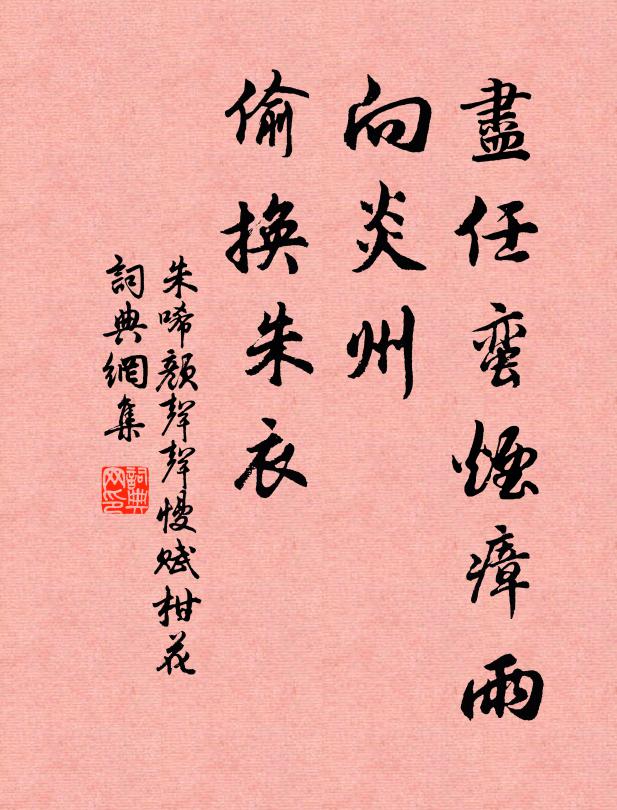 盡任蛮煙瘴雨
向炎州
偷換朱衣
朱唏顔聲聲慢賦柑花
詞典網集
詞典网印